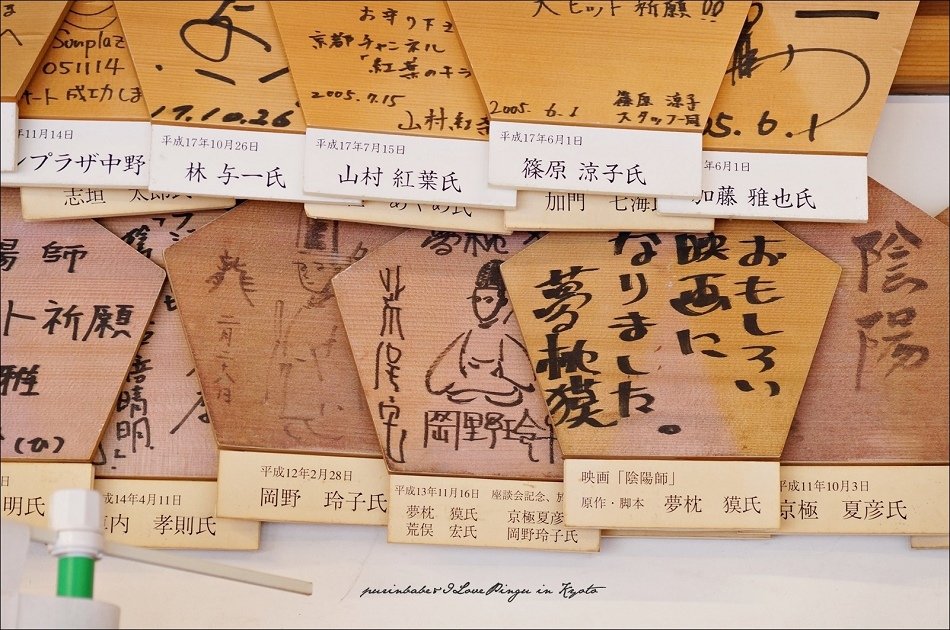 Sunplaz
051114
ート成功しま
年11月14日
ンプラザ中野
17.10.26
平成17年10月26日
林 与一氏
お弁り下さ
京都チャンネル
「紅葉のキラ
2005.7.15
山村紅
平成17年7月15日
山村 紅葉氏
大ヒット祈願!!
2005. 6.1
篠原 涼子
スタッフ一同
平成17年6月1日
篠原 涼子氏
05.6.1
年6月1日
加藤 雅也氏
志垣 太郎氏
あやめ氏
加門 七海氏
陽師
ト祈願
雅
明氏
晴明
平成14年4月11日
内 孝則氏
二月二八日
平成12年2月28日
岡野 玲子氏
夢枕
岡野玲子
平成13年11月16日 座談会記念、
夢枕 獏氏 京極夏彦
荒俣 宏氏 岡野玲子氏
おもしろい
映画に
なりました。
夢枕獏
映画「陰陽師」
原作・脚本 夢枕 獏氏
陰陽
平成11年10月3日
京極 夏彦氏
purinbabe&I Love Pingu in Kyoto